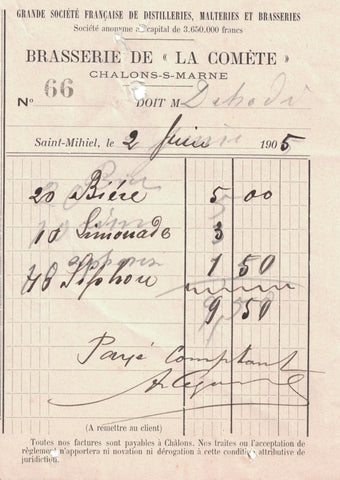 GRANDE SOCIÉTÉ FRANÇAISE DE DISTILLERIES, MALTERIES ET BRASSERIES
Société anonyme au capital de 3.650.000 francs
BRASSERIE DE « LA COMÈTE »
CHALONS-S-MARNE
N° 66
DOIT M
Saint-Mihiel, le 2 1905
20 Bière 5 00
10 Limonade 3
Siphon 1 50
9,50
Payé Comptant
(A remettre au client)
Toutes nos factures sont payables à Châlons. Nos traites ou l'acceptation de
règlement n'apportera ni novation ni dérogation à cette condition attributive de
juridiction.